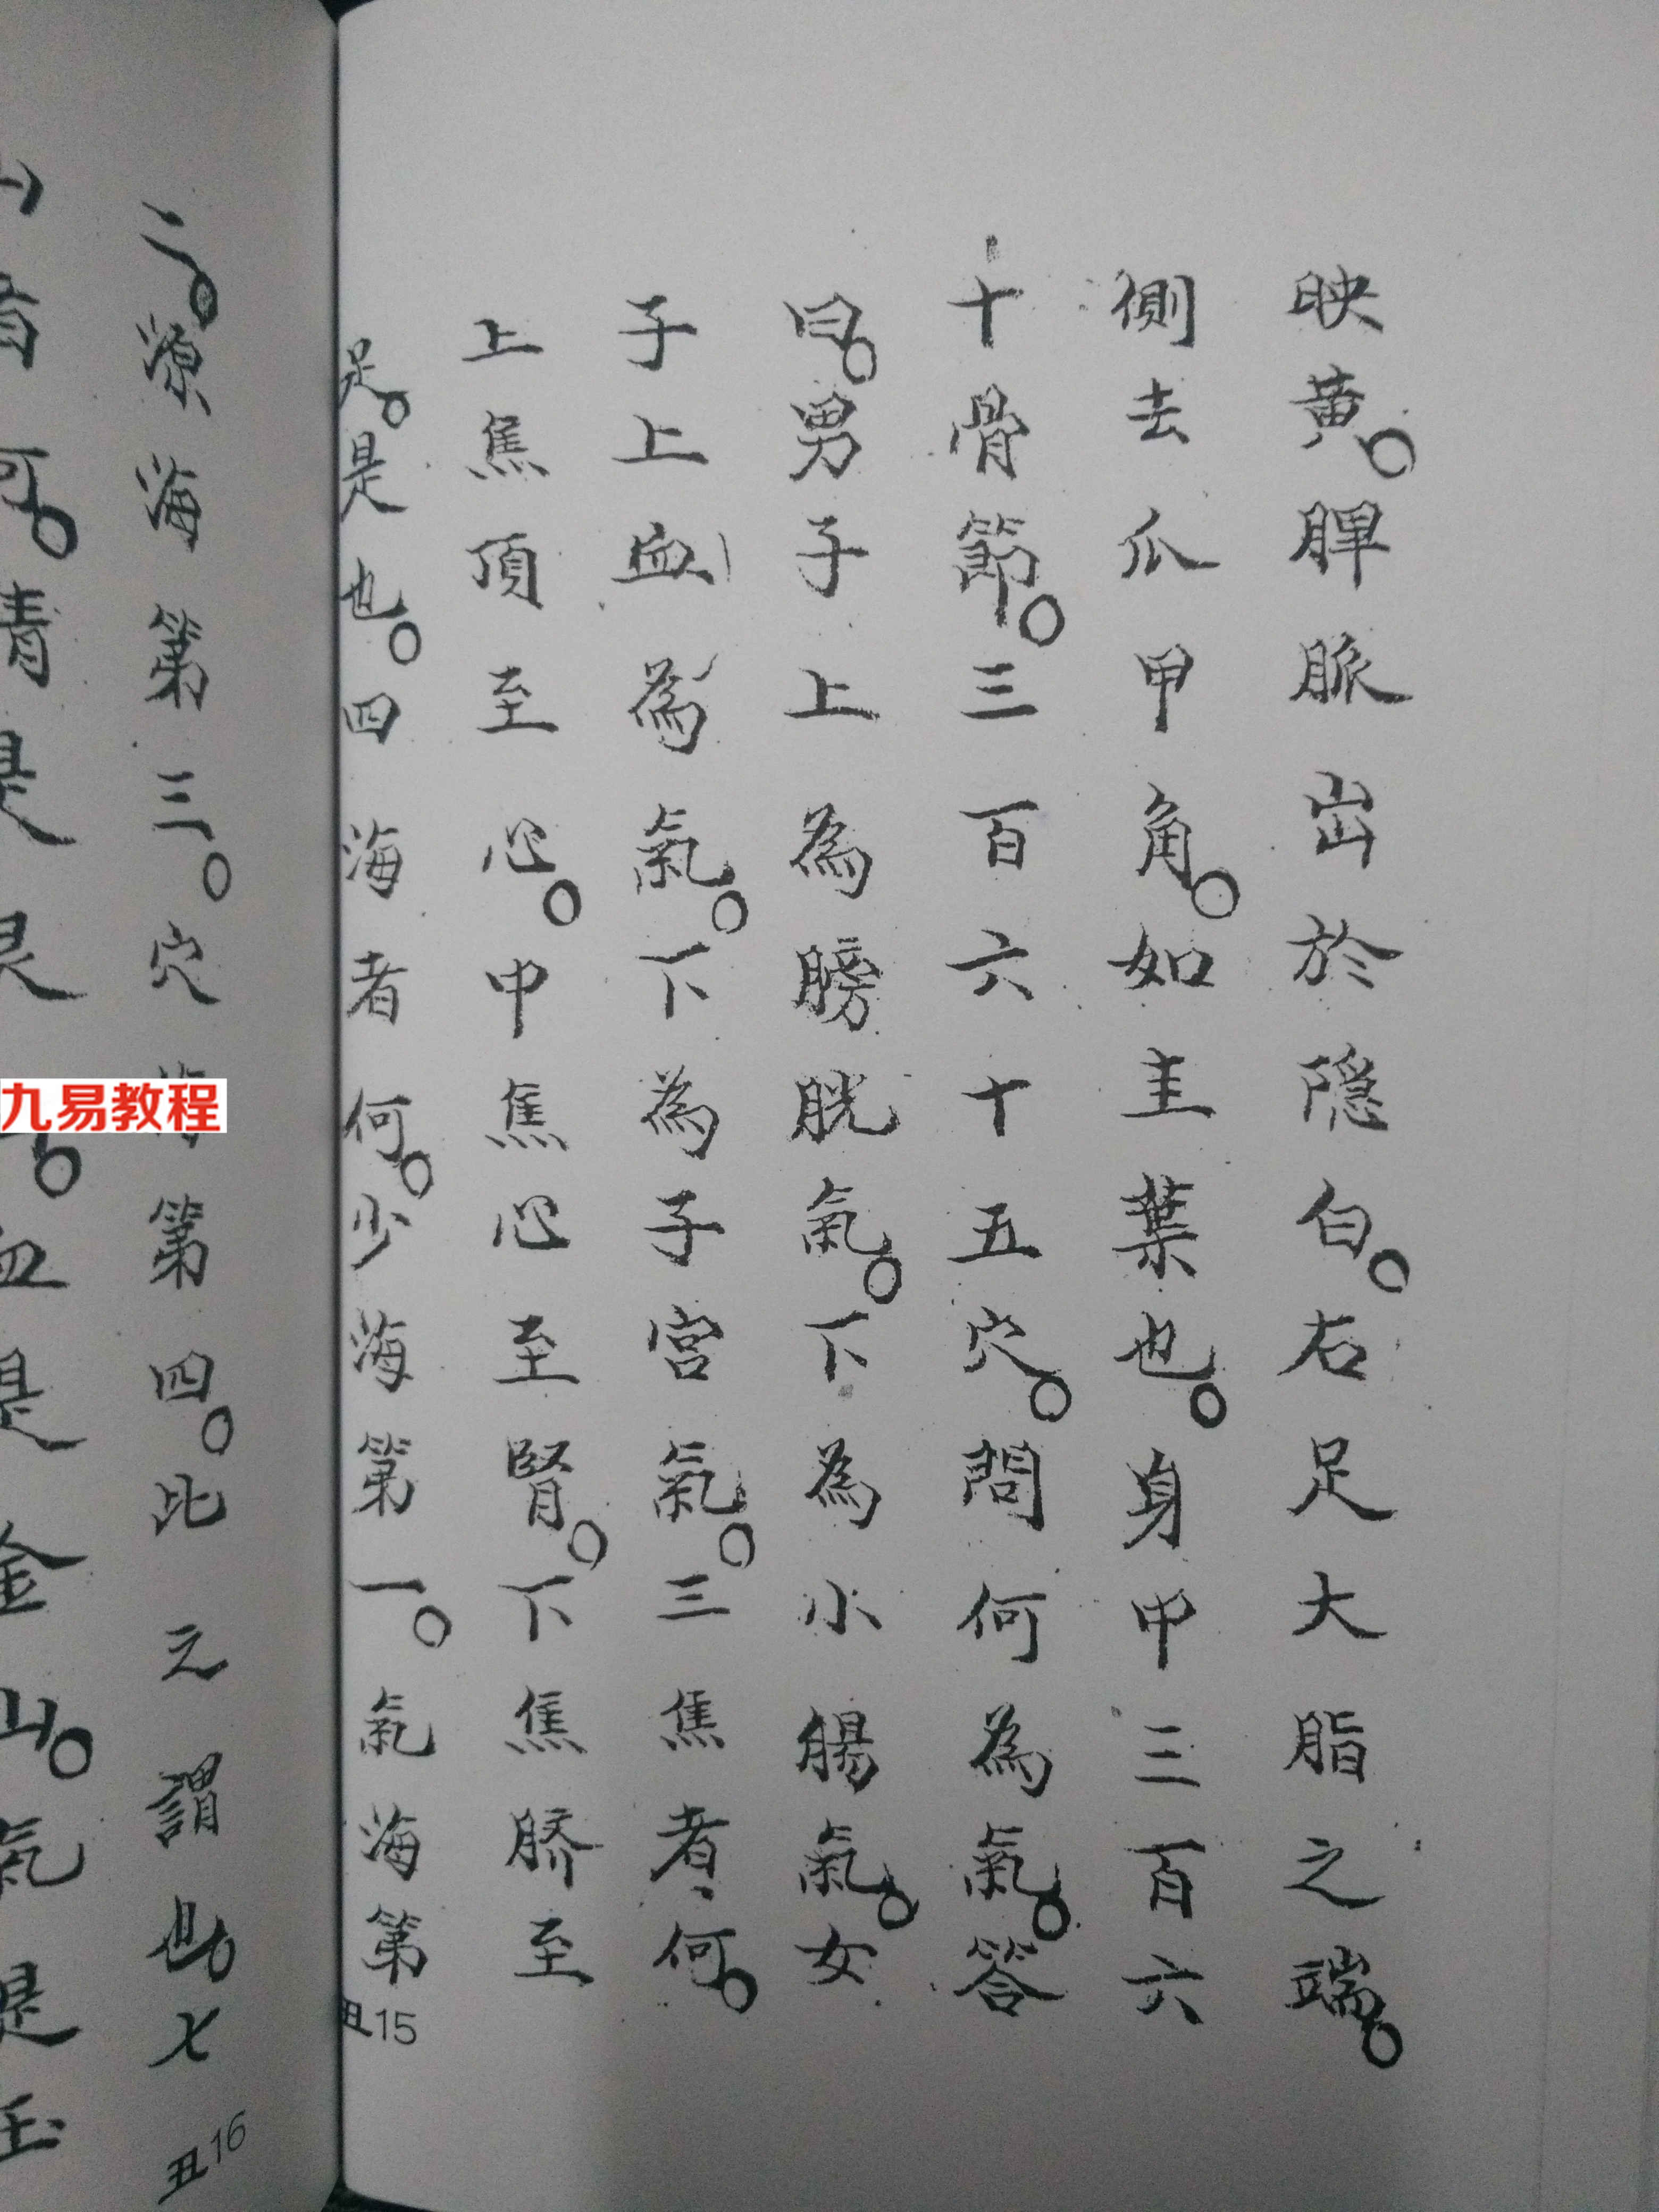 映黃。脾脈出於隱白。右足大脂之端。
側去爪甲角。如圭葉也。身甲三百六
十骨節。三百六十五穴。問何為氣。答
曰。男子上為膀胱氣。下為小腸氣。女
子上血為氣。下為子宮氣。三焦者何。
上焦頂至心。中焦心至腎。下焦臍至
足。是也。四海者何。少海第一。氣海第
丑15
二。源海第三。穴海第四。比之謂也。
丑16
九易教程